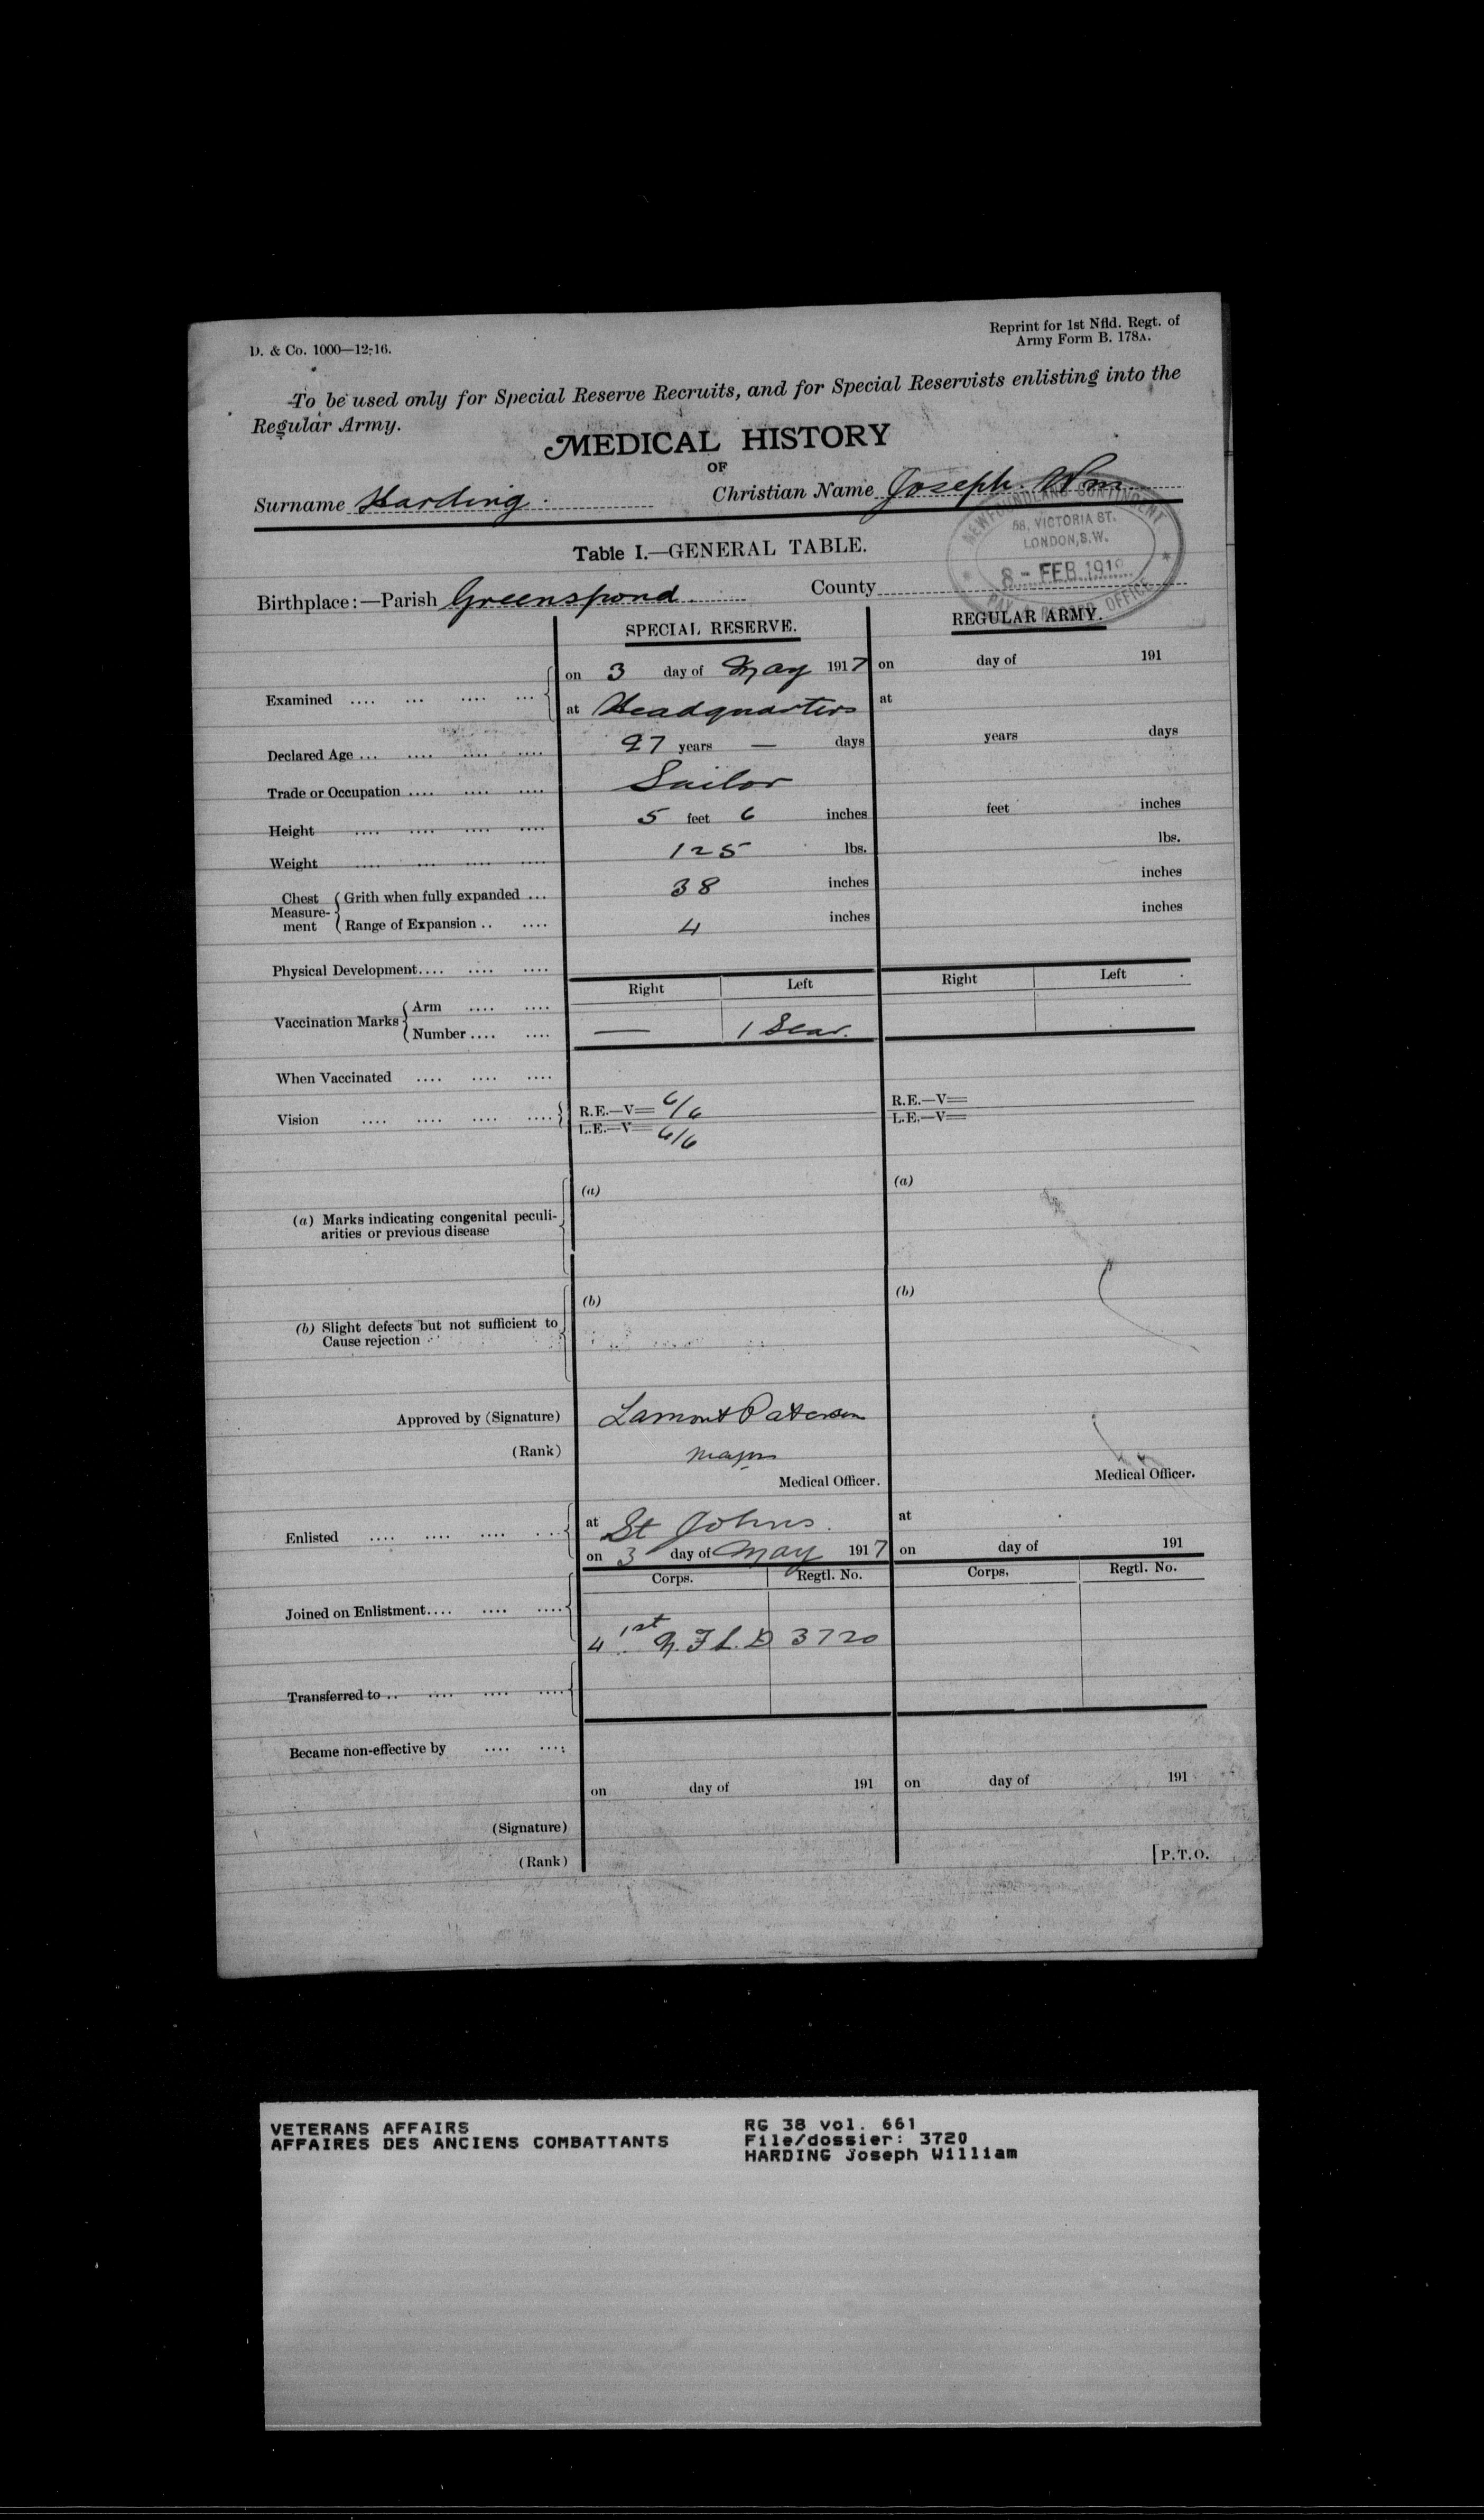 D. & Co. 1000—12-16.
Reprint for 1st Nfld. Regt. of
Army Form B. 178A.
To be used only for Special Reserve Recruits, and for Special Reservists enlisting into the
Regular Army.
MEDICAL HISTORY
OF
Surname Harding. Christian Name Joseph. Wm
NEWFOUNDLAND CONTINGENT
58, VICTORIA ST.
LONDON, S.W.
8 - FEB 191
PAY & RECORD OFFICE
Table I.—GENERAL TABLE.
Birthplace:—Parish Greenspond. County
SPECIAL RESERVE. REGULAR ARMY.
on 3 day of May 1917 on day of 191
Examined .... ... .... ...
at Headquarters at
Declared Age ... .... .... .... 27 years — days years days
Trade or Occupation .... .... .... Sailor
Height .... .... .... .... 5 feet 6 inches feet inches
Weight .... .... .... .... 125 lbs. lbs.
Chest Measure-ment Grith when fully expanded ... 38 inches inches
Range of Expansion .. .... 4 inches inches
Physical Development.... .... ....
Right Left Right Left
Vaccination Marks Arm .... ....
Number .... .... — 1 Scar.
When Vaccinated .... .... ....
Vision .... .... .... .... R.E.—V= 6/6 R.E.—V=
L.E.—V= 6/6 L.E.—V=
(a) (a)
(a) Marks indicating congenital peculi-
arities or previous disease
(b) (b)
(b) Slight defects but not sufficient to
Cause rejection
Approved by (Signature) Lamont Paterson
(Rank) Major
Medical Officer. Medical Officer.
Enlisted .... .... .... ... at St Johns. at
on 3 day of May 1917 on day of 191
Corps. Regtl. No. Corps. Regtl. No.
Joined on Enlistment.... .... ....
1st N.F.L.D 3720
Transferred to .. .... .... ....
Became non-effective by .... ....
on day of 191 on day of 191
(Signature)
(Rank)
[P.T.O.
VETERANS AFFAIRS RG 38 vol. 661
AFFAIRES DES ANCIENS COMBATTANTS File/dossier: 3720
HARDING Joseph William